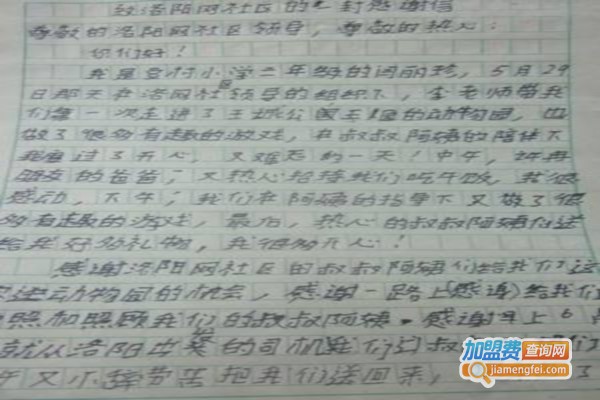 给洛阳网社区的一封感谢信
尊敬的洛阳网社区领导，尊敬的热心：
你们好！
我是 村小学二年级的闫丽珍，5月29
日那天在洛网社区领导的组织下， 老师带我
们第一次走进了王城公园王 的动物园，
做了很多有趣的游戏，在叔叔阿姨的陪伴下
我 过了开心、又难忘的一天！中午，
朋友的爸爸，又热心招待我们吃午饭，我很
感动，下午，我们在阿姨的指导下又做了很
多有趣的游戏，最后，热心的叔叔阿姨们送
给我好多礼物，我很开心！
感谢洛阳网社区的叔叔阿姨们给我们这
进动物园的机会，感谢一路上(感谢)给我们
照和照顾我们的叔叔阿姨。感谢早上6点
就从洛阳出发的司机 们 叔
午又不辞劳苦把我们送回来， 了
加盟费查询网
jiamengfei.com